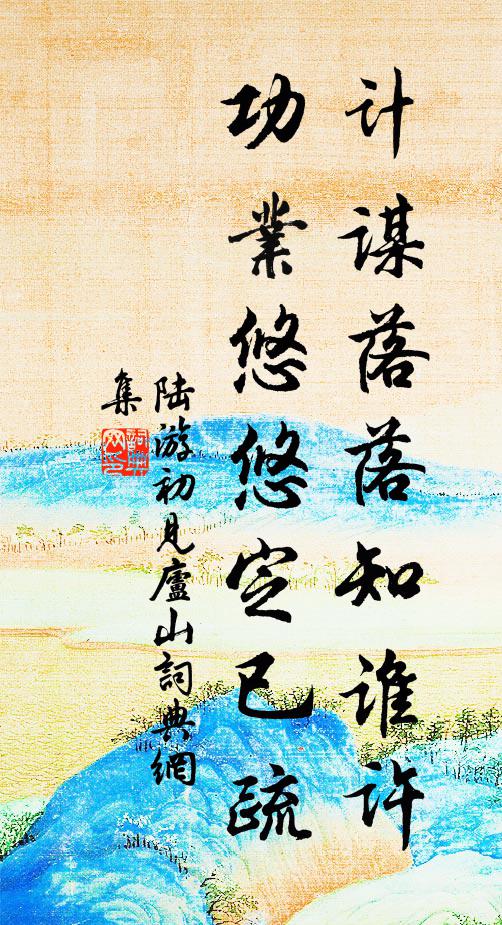 计謀落落知誰許
功業悠悠定已疏
陆游初見廬山詞典網
集